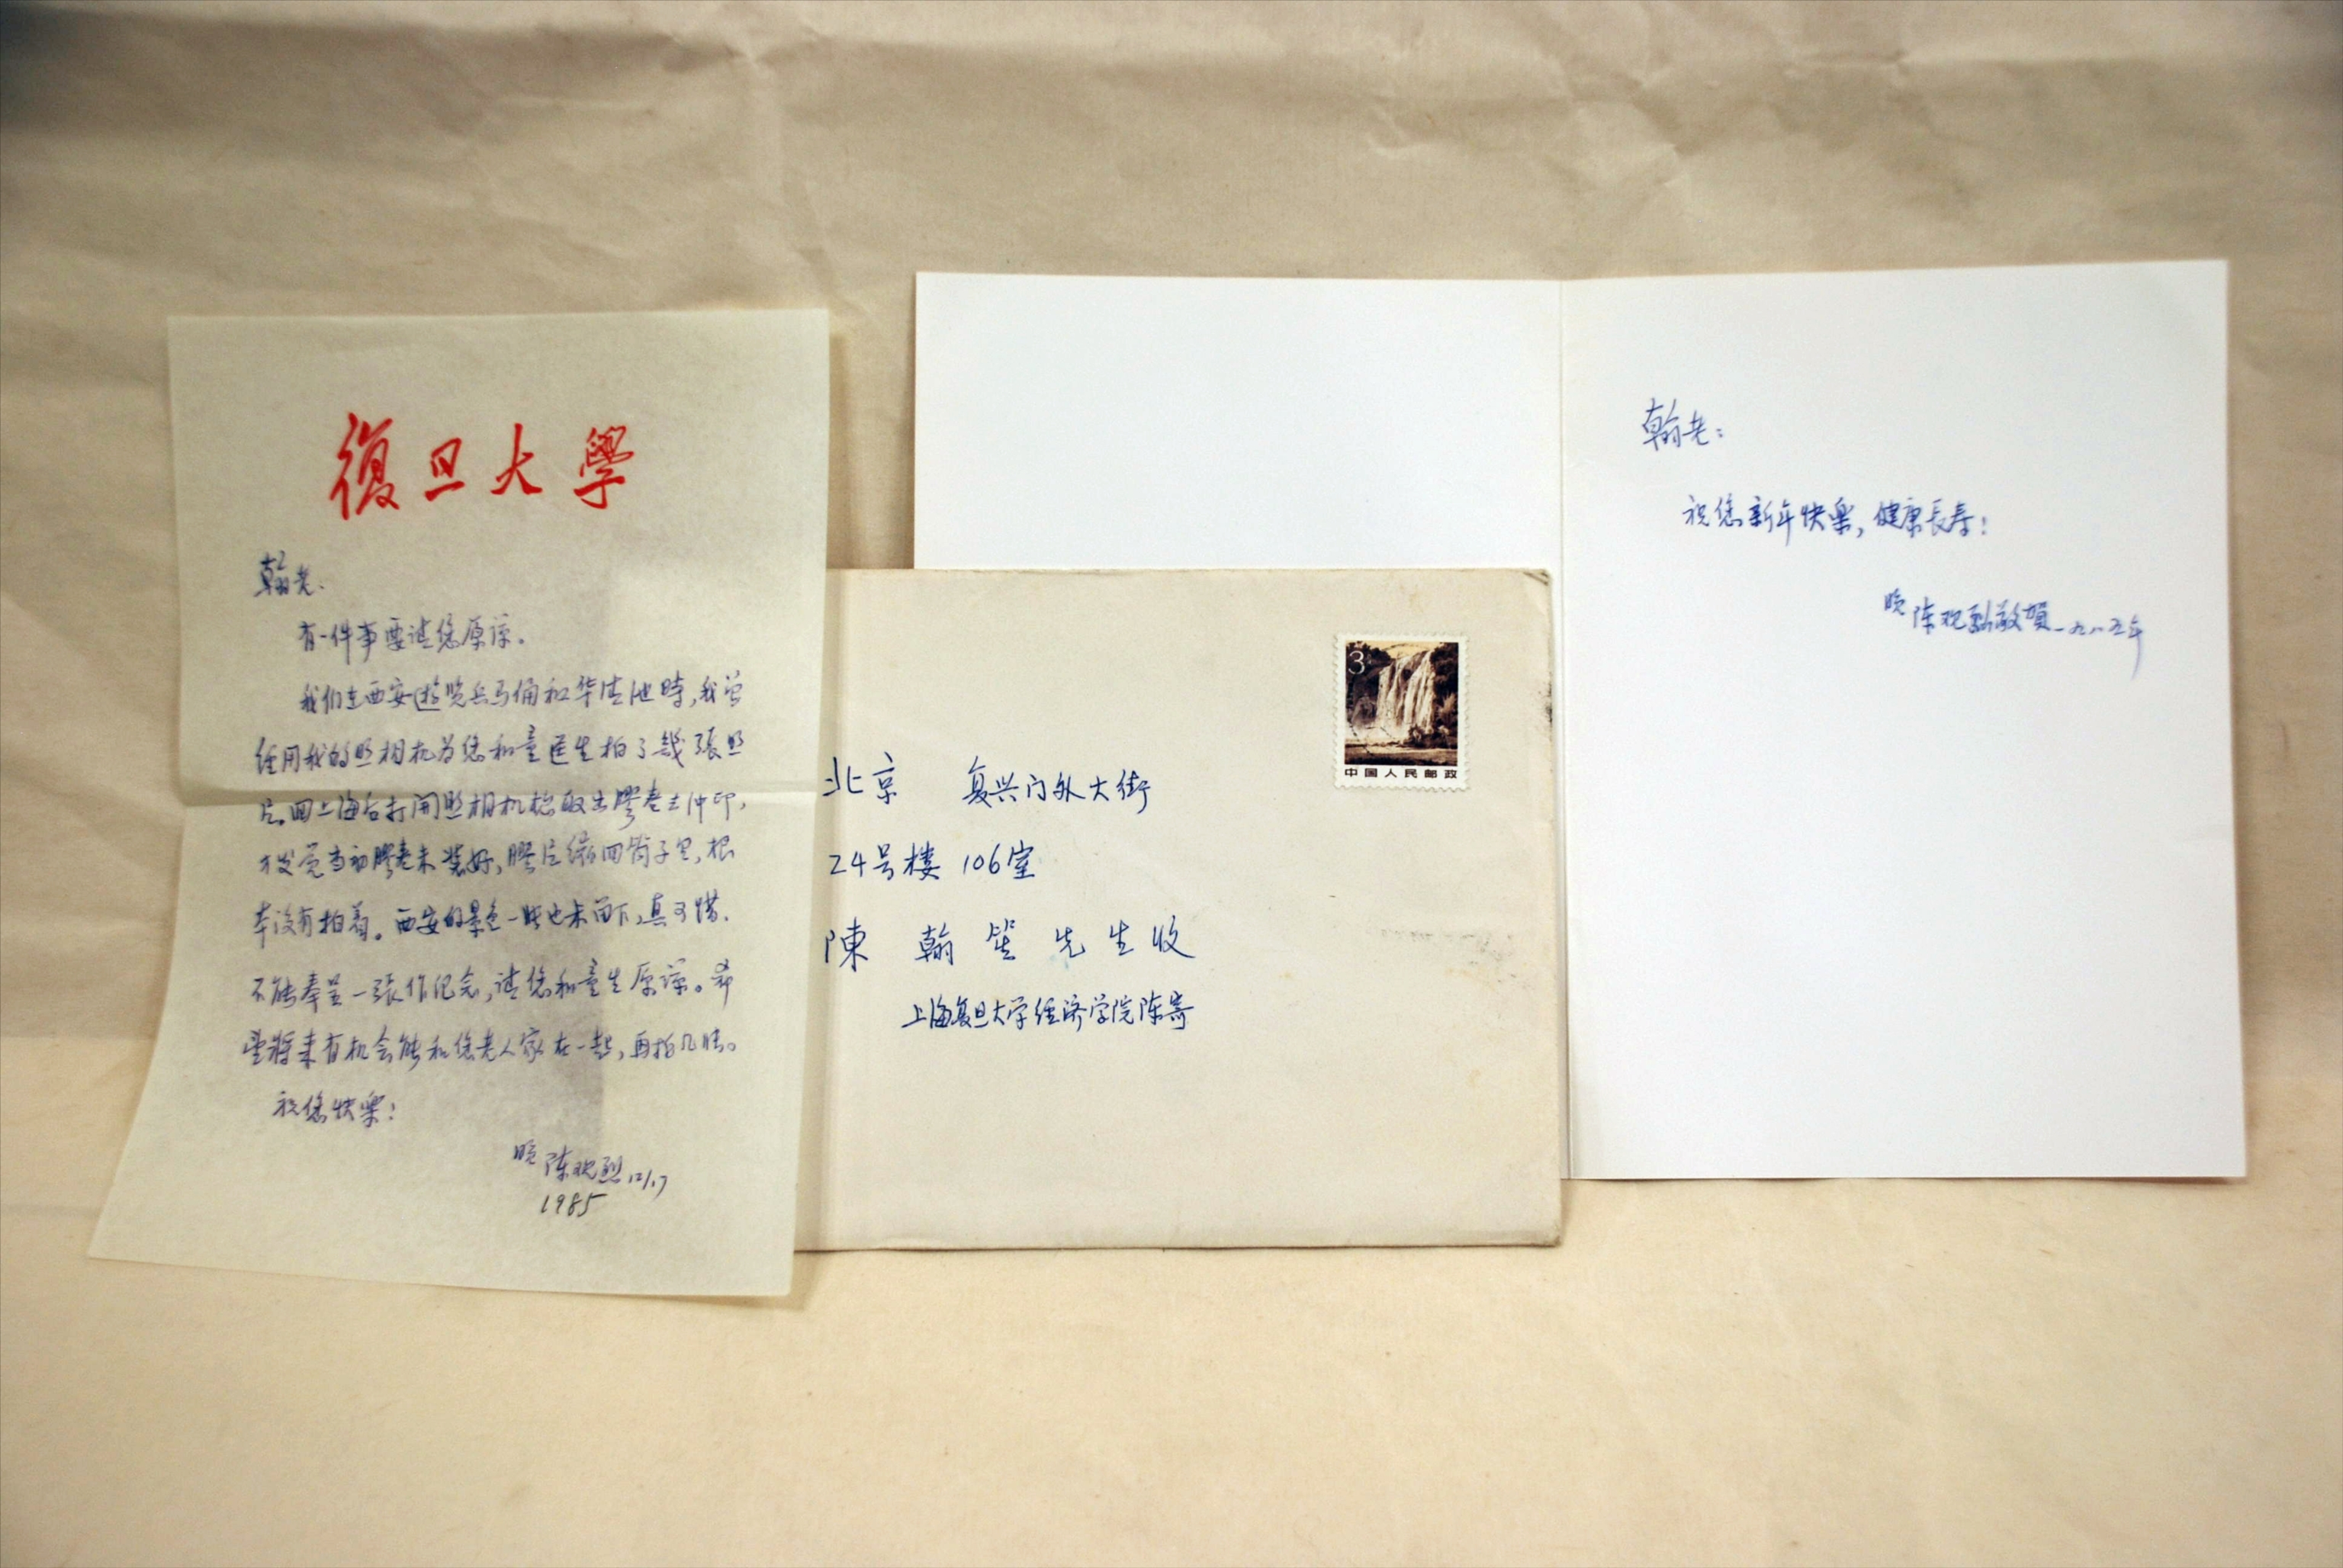 復旦大學
翰老:
有一件事要请您原谅。
我们在西安遊览兵马俑和华清池時,我曾
经用我的照相机为您和童医生拍了幾張照
片。回上海后打开照相机想取出膠卷去冲印,
才发觉当初膠卷未装好,膠片缩回筒子里,根
本没有拍着。西安的景色一些也未留下,真可惜.
不能奉呈一張作纪念,请您和童生原谅。希
望将来有机会能和您老人家在一起,再拍几張。
祝您快樂!
晚 陈观烈 12/17
1985
3
中国人民邮政
北京 复兴门外大街
24号楼 106室
陳 翰 笙 先 生 收
上海复旦大学经济学院陈寄
翰老:
祝您新年快樂,健康長寿!
晚 陈观烈敬賀 一九八五年